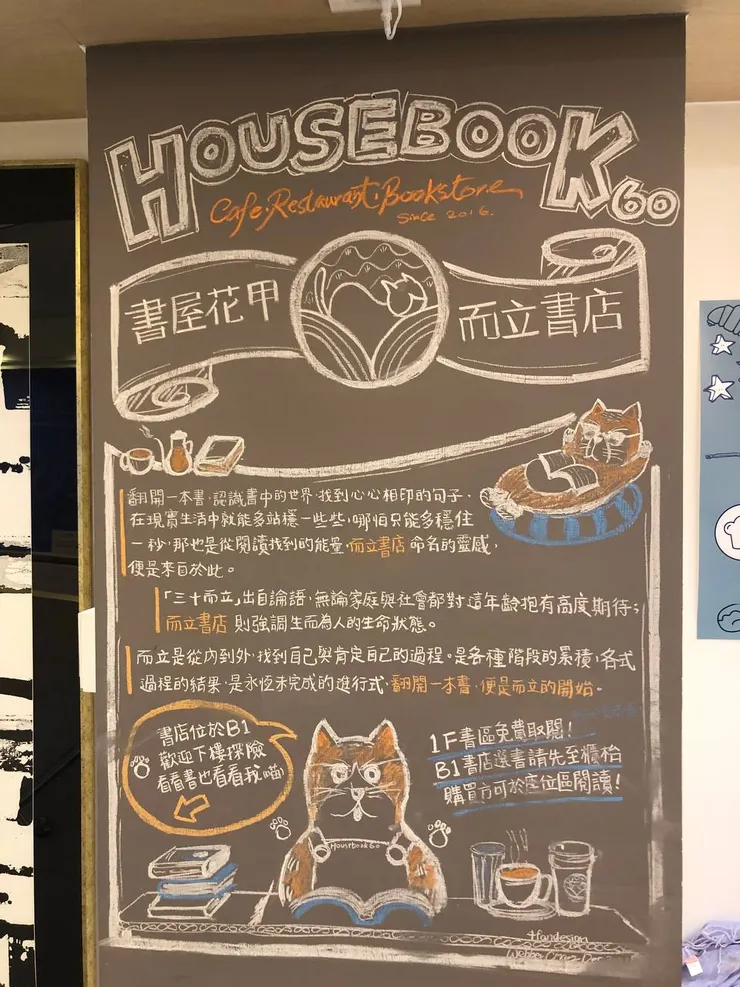 HOUSEBOOK60
Cafe.Restaurant.Bookstore
since 2016.
書屋花甲
而立書店
翻開一本書,認識書中的世界,找到心心相印的句子,
在現實生活中就能多站穩一些些,哪怕只能多穩住
一秒,那也是從閱讀找到的能量,而立書店命名的靈感,
便是來自於此。
「三十而立」出自論語,無論家庭與社會都對這年齡抱有高度期待;
而立書店 則強調生而為人的生命狀態。
而立是從內到外,找到自己與肯定自己的過程。是各種階段的累積,各式
過程的結果,是永恆未完成的進行式,翻開一本書,便是而立的開始。
書店位於B1
歡迎下樓探險
看看書也看看我喵
1F書區免費取閱!
B1書店選書請先至櫃枱
購買方可於座位區閱讀!
Housebook60